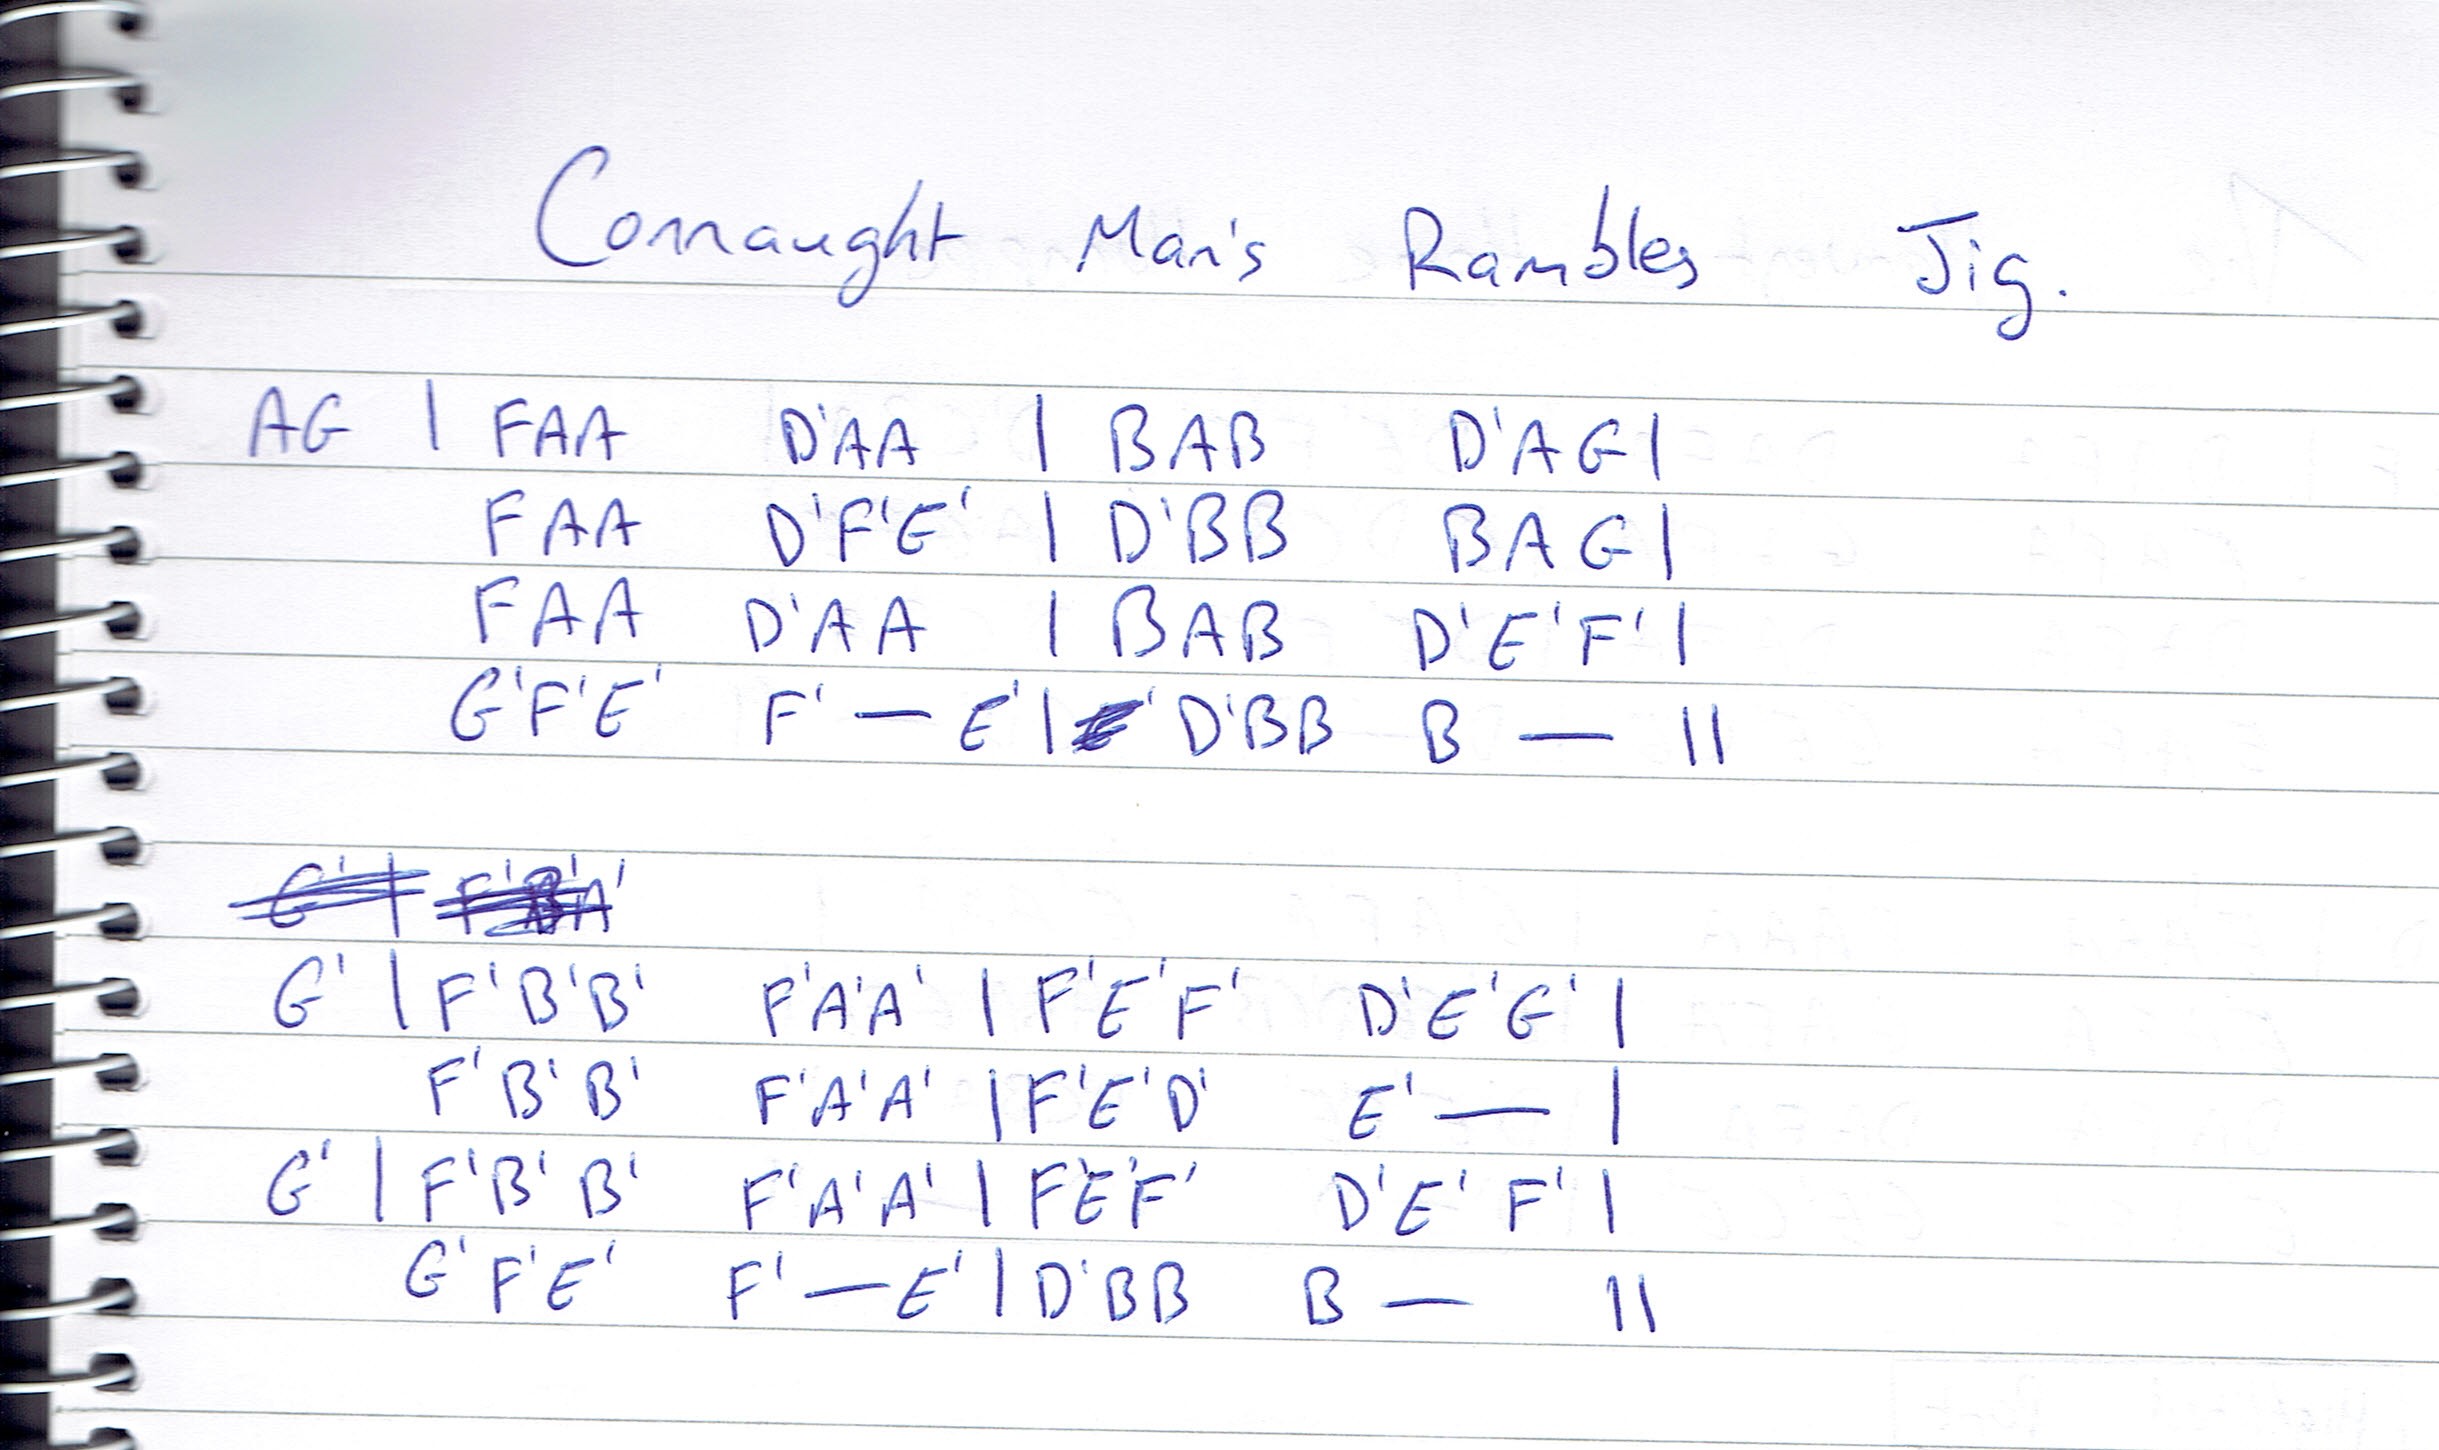 Connaught Man's Rambles Jig.
AG | FAA D'AA | BAB D'AG |
FAA D'F'E' | D'BB BAG |
FAA D'AA | BAB D'E'F' |
G'F'E' F' — E' | D'BB B — ||
G' | F'B'B' F'A'A' | F'E'F' D'E'G' |
F'B'B' F'A'A' | F'E'D' E' — |
G' | F'B'B' F'A'A' | F'E'F' D'E'F' |
G'F'E' F' — E' | D'BB B — ||